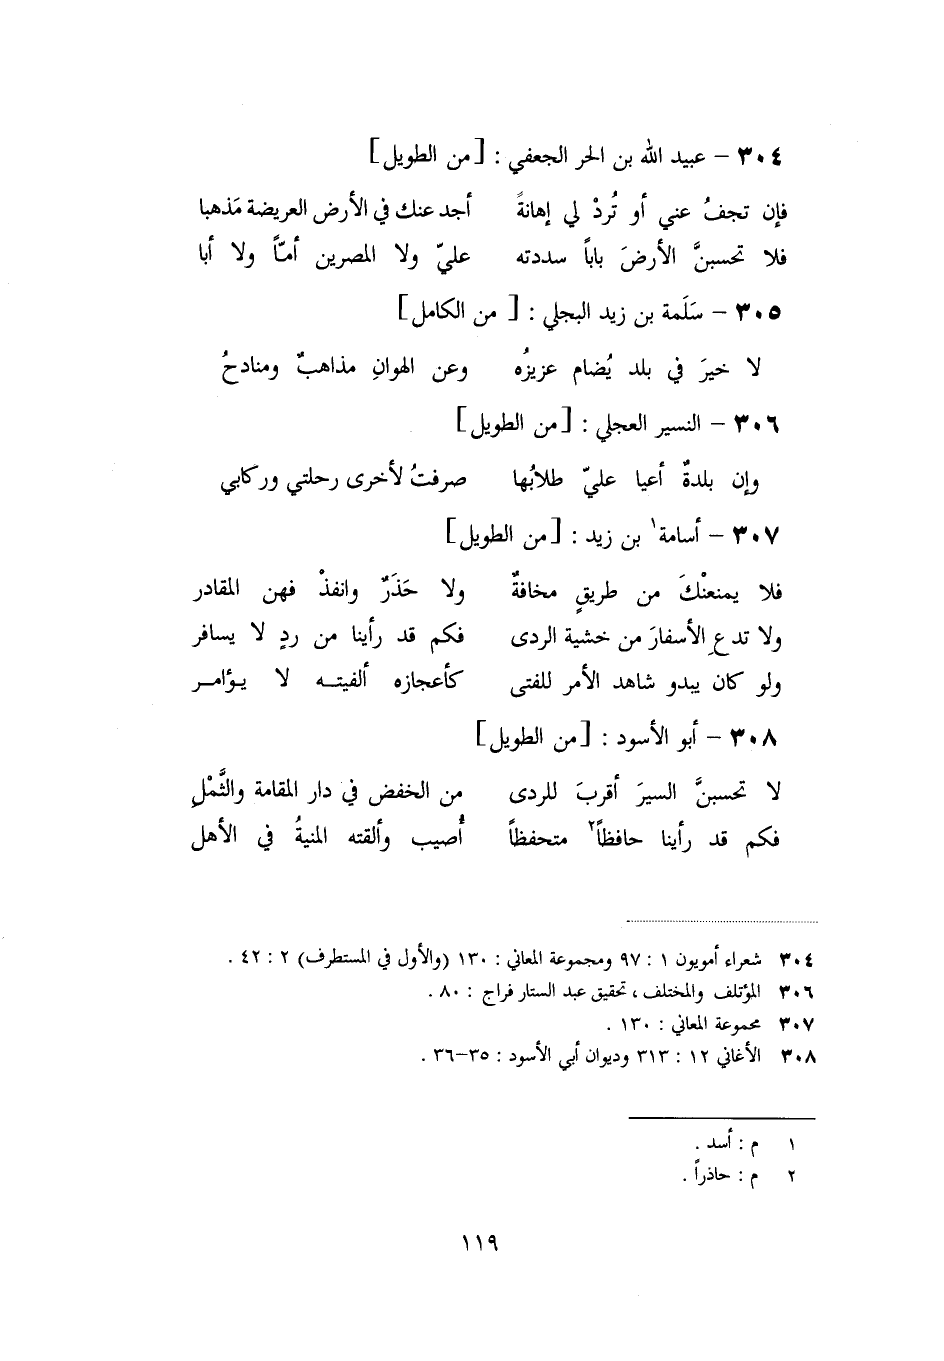 ٣٠٤ – عبيد الله بن الحر الجعفي : [من الطويل]
فإن تجفُ عني أو تُردْ لي إهانةً أجد عنك في الأرض العريضة مَذهبا
فلا تحسبنَّ الأرضَ باباً سددته عليّ ولا المصرين أمّاً ولا أبا
٣٠٥ – سَلَمة بن زيد البجلي : [ من الكامل]
لا خيرَ في بلد يُضام عزيزُه وعن الهوانِ مذاهبٌ ومنادحُ
٣٠٦ – النسير العجلي : [من الطويل]
وإن بلدةٌ أعيا عليّ طلابُها صرفتُ لأخرى رحلتي وركابي
٣٠٧ – أسامة١ بن زيد : [من الطويل]
فلا يمنعنْكَ من طريقٍ مخافةٌ ولا حَذَرٌ وانفذْ فهن المقادر
ولا تدعِ الأسفارَ من خشية الردى فكم قد رأينا من ردٍ لا يسافر
ولو كان يبدو شاهد الأمر للفتى كأعجازه ألفيتـه لا يـؤامـر
٣٠٨ – أبو الأسود : [من الطويل]
لا تحسبنَّ السيرَ أقربَ للردى من الخفض في دار المقامة والثَّمْلِ
فكم قد رأينا حافظاً٢ متحفظاً أُصيب وألقته المنيةُ في الأهل
٣٠٤ شعراء أمويون ١ : ٩٧ ومجموعة المعاني : ١٣٠ (والأول في المستطرف) ٢ : ٤٢ .
٣٠٦ المؤتلف والمختلف ، تحقيق عبد الستار فراج : ٨٠ .
٣٠٧ مجموعة المعاني : ١٣٠ .
٣٠٨ الأغاني ١٢ : ٣١٣ وديوان أبي الأسود : ٣٥–٣٦ .
١ م : أسد .
٢ م : حاذراً .
١١٩